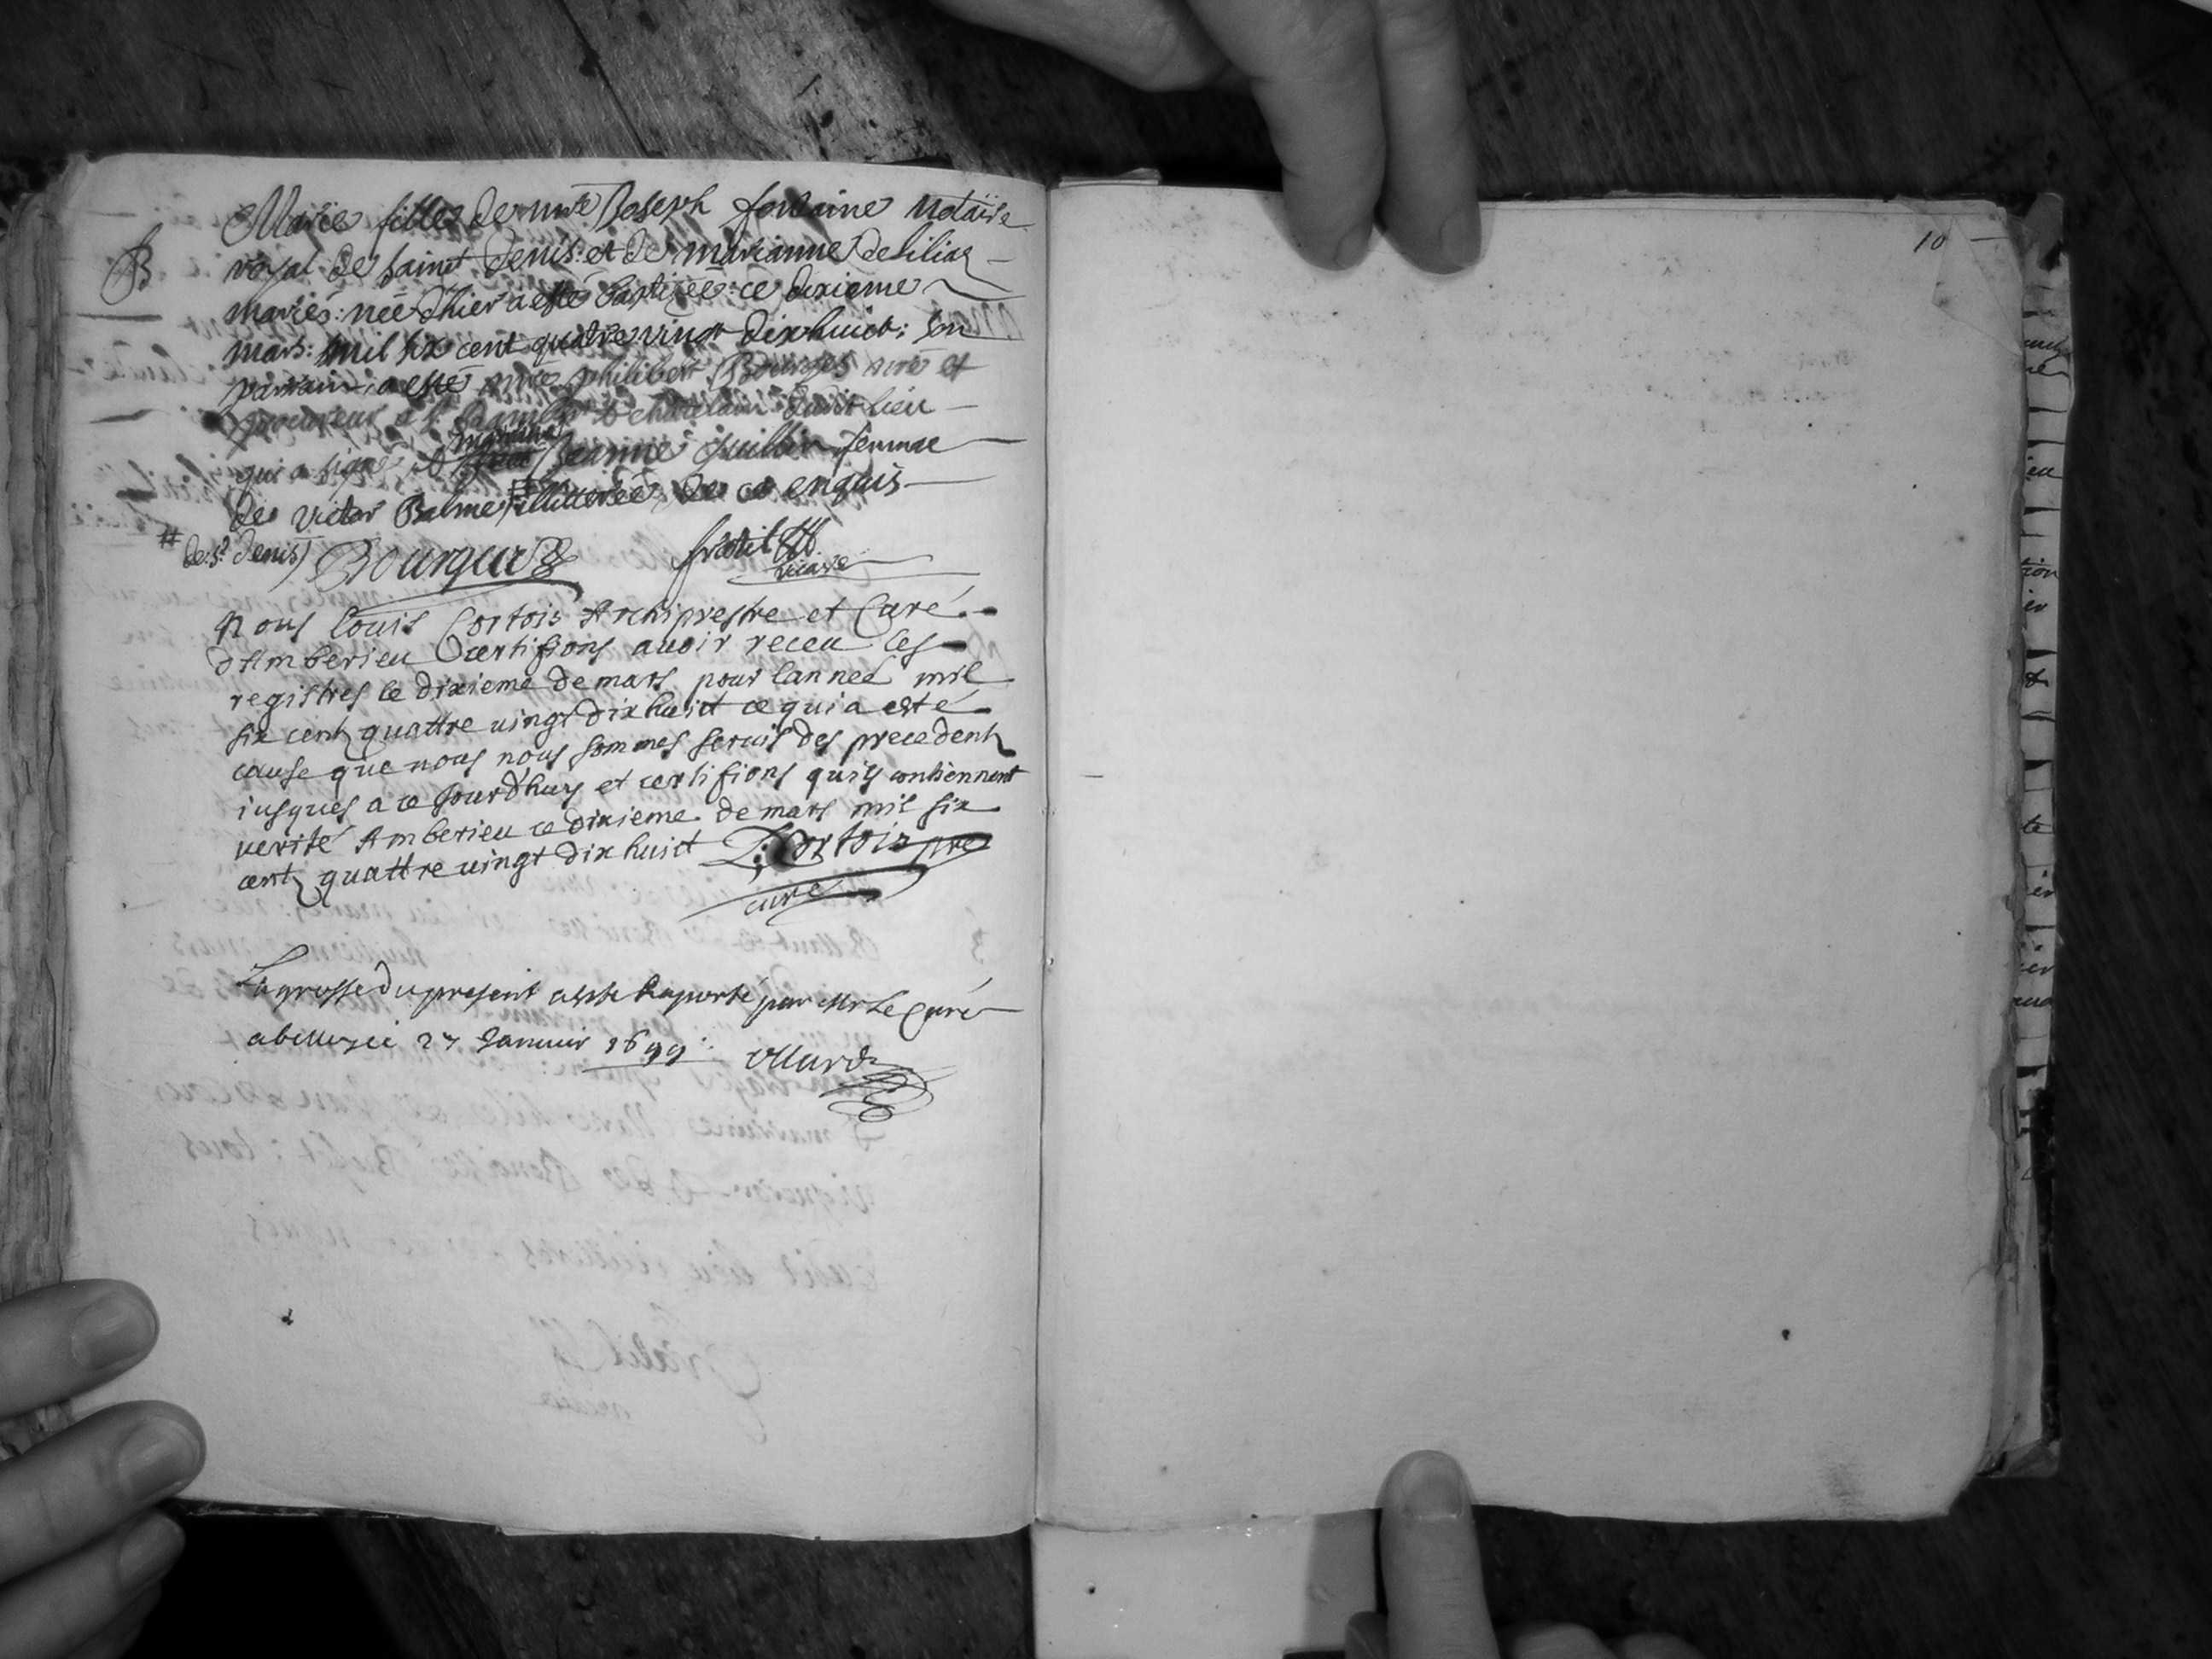 10
B
Marie fille de mre Joseph fontaine notaire
royal de sainct Denis: et de marianne de
mariés: née d'hier a esté baptizée: ce dixieme
mars: mil six cent quatre vingt dixhuict: son
parrain a esté mre philibert Bourges nre et
procureur a st Rambert & chatelain dudit lieu
qui a signé & marraine Jeanne femme
de victor Balme # illitterée de ce enquis
# de st Denis Bourges
vicaire
Nous Louis Cortois Archiprestre et Curé
d'Amberieu Certifions avoir receu les
registres le dixieme de mars pour lannee mil
six centz quattre vingt dix huict ce qui a esté
cause que nous nous sommes servis des precedentz
iusques a ce jourdhuy et certifions quils contiennent
verité Amberieu ce dixieme de mars mil six
centz quattre vingt dix huict L: Cortois pre
curé
La grosse du present a esté Raporté par Mr Le Curé
a belley ce 27 Janvier 1699: